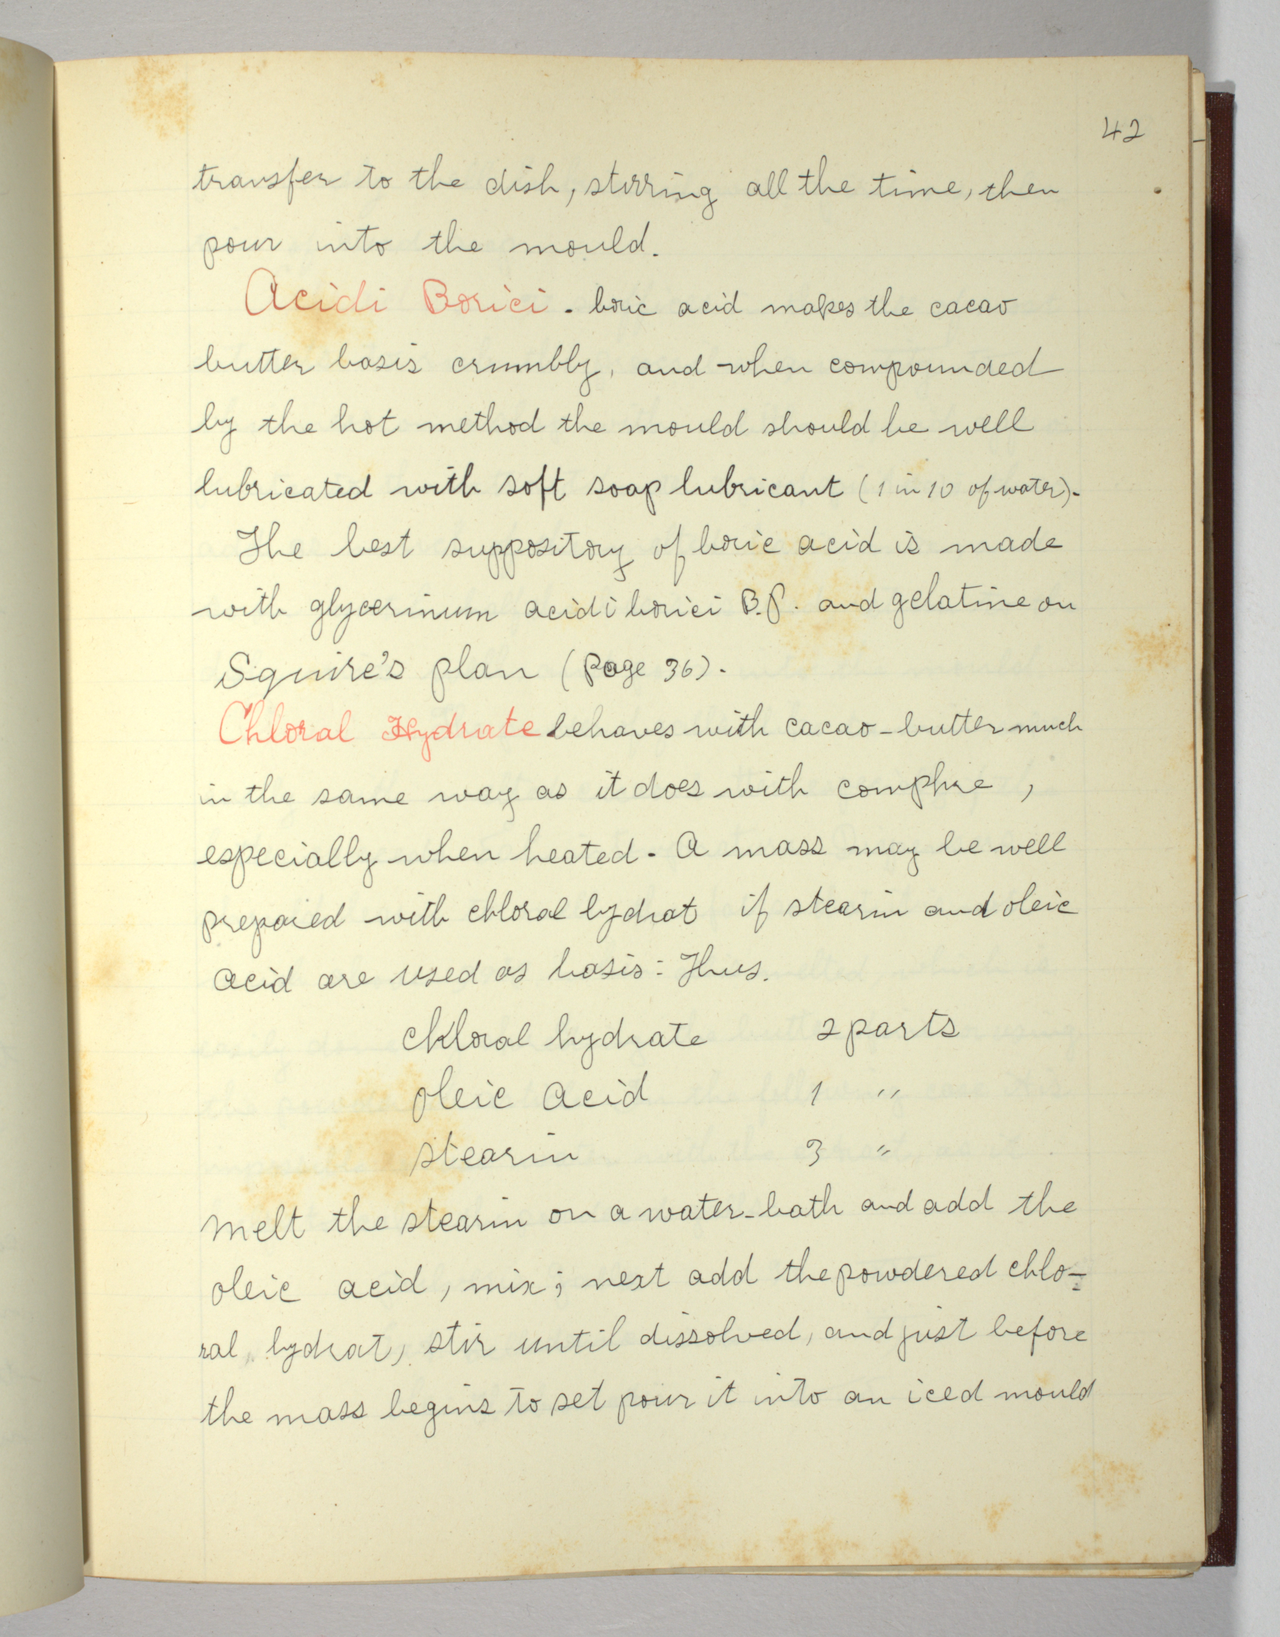 42
transfer to the dish, stirring all the time, then
pour into the mould.
Acidi Borici. boric acid makes the cacao
butter basis crumbly, and when compounded
by the hot method the mould should be well
lubricated with soft soap lubricant (1 in 10 of water).
The best suppository of boric acid is made
with glycerinum acidi borici B.P. and gelatine on
Squire's plan (Page 36).
Chloral Hydrate behaves with cacao-butter much
in the same way as it does with comphre,
especially when heated. A mass may be well
prepared with chloral hydrat if stearin and oleic
acid are used as basis: Thus.
chloral hydrate 2 parts
oleic acid 1 "
stearin 3 "
Melt the stearin on a water-bath and add the
oleic acid, mix; next add the powdered chlo-
ral, hydrat, stir until dissolved, and just before
the mass begins to set pour it into an iced mould